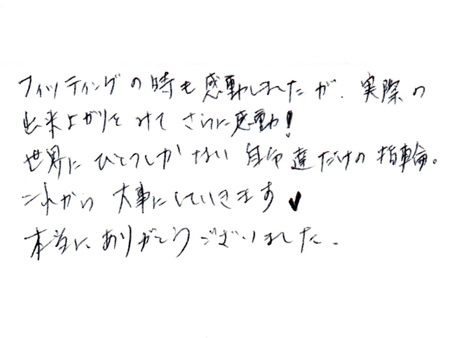 フィッティングの時も感動しましたが、実際の
出来上がりをみてさらに感動!
世界にひとつしかない自分達だけの指輪。
これから大事にしていきます♥
本当にありがとうございました。